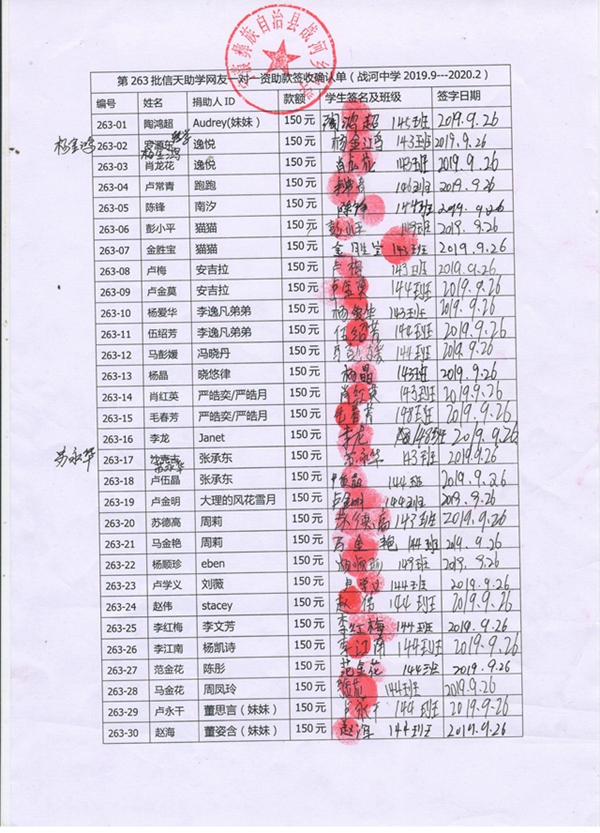 彝族自治县战河乡
第 263 批信天助学网友一对一资助款签收确认单（战河中学 2019.9---2020.2）
编号 姓名 捐助人 ID 款额 学生签名及班级 签字日期
263-01 陶鸿超 Audrey(妹妹) 150 元 陶鸿超 145班 2019.9.26
杨金鸿 263-02 逸悦 150 元 杨金鸿 143班 2019.9.26
杨金鸿
263-03 肖龙花 逸悦 150 元 肖龙花 143班 2019.9.26
263-04 卢常青 跑跑 150 元 146班 2019.9.26
263-05 陈锋 南汐 150 元 陈锋 144班 2019.9.26
263-06 彭小平 猫猫 150 元 彭小平 149班 2019.9.26
263-07 金胜宝 猫猫 150 元 金胜宝 143班 2019.9.26
263-08 卢梅 安吉拉 150 元 卢梅 143班 2019.9.26
263-09 卢金莫 安吉拉 150 元 卢金莫 144班 2019.9.26
263-10 杨爱华 李逸凡弟弟 150 元 杨爱华 143班 2019.9.26
263-11 伍绍芳 李逸凡弟弟 150 元 伍绍芳 144班 2019.9.26
263-12 马彭媛 冯晓丹 150 元 144班 2019.9.26
263-13 杨晶 晓悠律 150 元 杨晶 143班 2019.9.26
263-14 肖红英 严皓奕/严皓月 150 元 肖红英 143班 2019.9.26
263-15 毛春芳 严皓奕/严皓月 150 元 毛春芳 148班 2019.9.26
263-16 李龙 Janet 150 元 李龙 148班 2019.9.26
苏永华 263-17 张承东 150 元 苏永华 143班 2019.9.26
苏永华
263-18 卢伍晶 张承东 150 元 144班 2019.9.26
263-19 卢金明 大理的风花雪月 150 元 卢金明 144班 2019.9.26
263-20 苏德高 周莉 150 元 苏德高 143班 2019.9.26
263-21 马金艳 周莉 150 元 马金艳 144班 2019.9.26
263-22 杨顺珍 eben 150 元 149班 2019.9.26
263-23 卢学义 刘薇 150 元 144班 2019.9.26
263-24 赵伟 stacey 150 元 赵伟 144班 2019.9.26
263-25 李红梅 李文芳 150 元 李红梅 144班 2019.9.26
263-26 李江南 杨凯诗 150 元 李江南 144班 2019.9.26
263-27 范金花 陈彤 150 元 范金花 144班 2019.9.26
263-28 马金花 周凤玲 150 元 144班 2019.9.26
263-29 卢永干 董思言（妹妹） 150 元 卢永干 144班 2019.9.26
263-30 赵海 董姿含（妹妹） 150 元 赵海 144班 2019.9.26